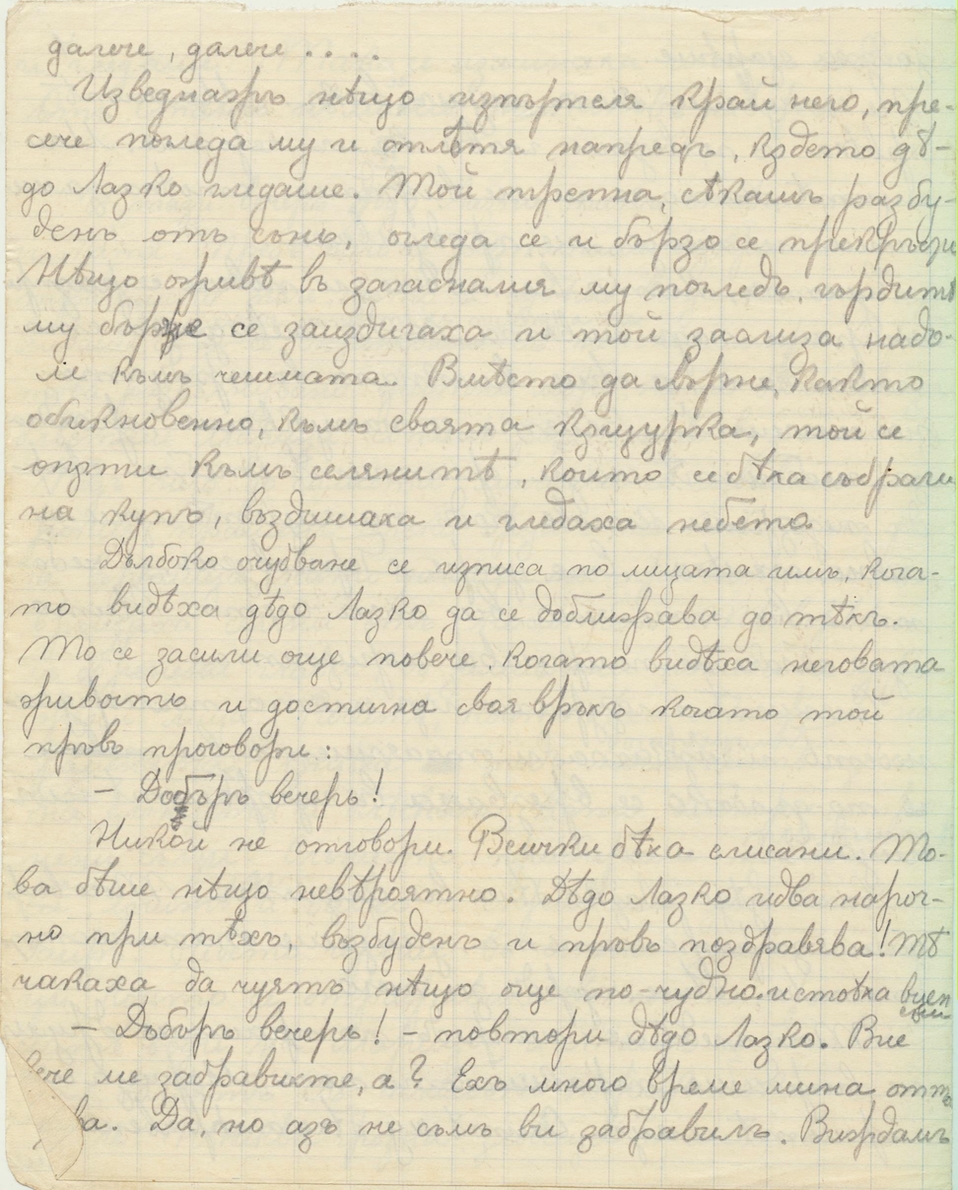 далече, далече . . . .
Изведнажъ нѣщо изпърполя край него, пре-
сече погледа му и отлѣтя напредъ, кѫдето дѣ-
до Лазко гледаше. Той трепна, сѣкашъ разбу-
денъ отъ сънь, огледа се и бързо се прекръсти
Нѣщо оживѣ въ загасналия му погледъ, гърдитѣ
му бърже се заиздигаха и той заслиза надо-
ле къмъ чешмата. Вмѣсто да свърне, както
обикновенно, къмъ своята кѫщурка, той се
опѫти къмъ селянитѣ, които се бѣха събрали
на купъ, въздишаха и гледаха небето
Дълбоко очудване се изписа по лицата имъ, кога-
то видѣха дѣдо Лазко да се доближава до тѣхъ.
То се засили още повече, когато видѣха неговата
живость и достигна своя връхъ когато той
пръвъ проговори:
– Добъръ вечеръ!
Никой не отговори. Всички бѣха слисани. То-
ва бѣше нѣщо невѣроятно. Дѣдо Лазко идва нароч-
но при тѣхъ, възбуденъ и пръвъ поздравява! Тѣ
чакаха да чуятъ нѣщо още по-чудно. и стоѣха
– Добъръ вечеръ! – повтори дѣдо Лазко. Вие
вече ме забравихте, а? Ехъ много време мина отъ
ва. Да, но азъ не съмъ ви забравилъ. Виждамъ